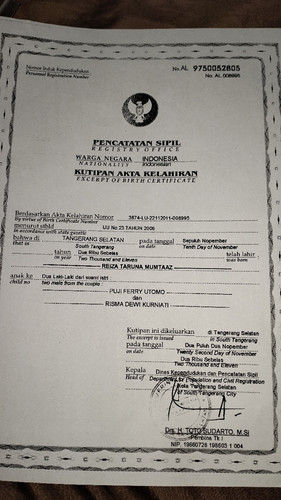 Nomor Induk Kependudukan
Personnel Registration Number
No AL 9750052805
No. AL 008995
PENCATATAN SIPIL
REGISTRY OFFICE
WARGA NEGARA INDONESIA
NATIONALITY Indonesian
KUTIPAN AKTA KELAHIRAN
EXCERPT OF BIRTH CERTIFICATE
Berdasarkan Akta Kelahiran Nomor 3674-LU-22112011-008995
By virtue of Birth Certificate Number
menurut stbld UU No.23 TAHUN 2006
in accordance with state gazette
bahwa di TANGERANG SELATAN pada tanggal Sepuluh Nopember
that in South Tangerang on date Tenth Day of November
tahun Dua Ribu Sebelas telah lahir
on year Two Thousand and Eleven was born
REIZA TARUNA MUMTAAZ
anak ke Dua Laki-Laki dari suami istri :
child no two male from the couple :
PUJI FERRY UTOMO
dan
RISMA DEWI KURNIATI
Kutipan ini dikeluarkan di Tangerang Selatan
The excerpt is issued in South Tangerang
pada tanggal Dua Puluh Dua Nopember
on date Twenty Second Day of November
Dua Ribu Sebelas
Two Thousand and Eleven
Kepala Dinas Kependudukan dan Pencatatan Sipil
Head of Department for Population and Civil Registration
Kota Tangerang Selatan
of South Tangerang City
Drs. H. TOTO SUDARTO, M.Si
Pembina Tk I
NIP. 19660726 198603 1 004